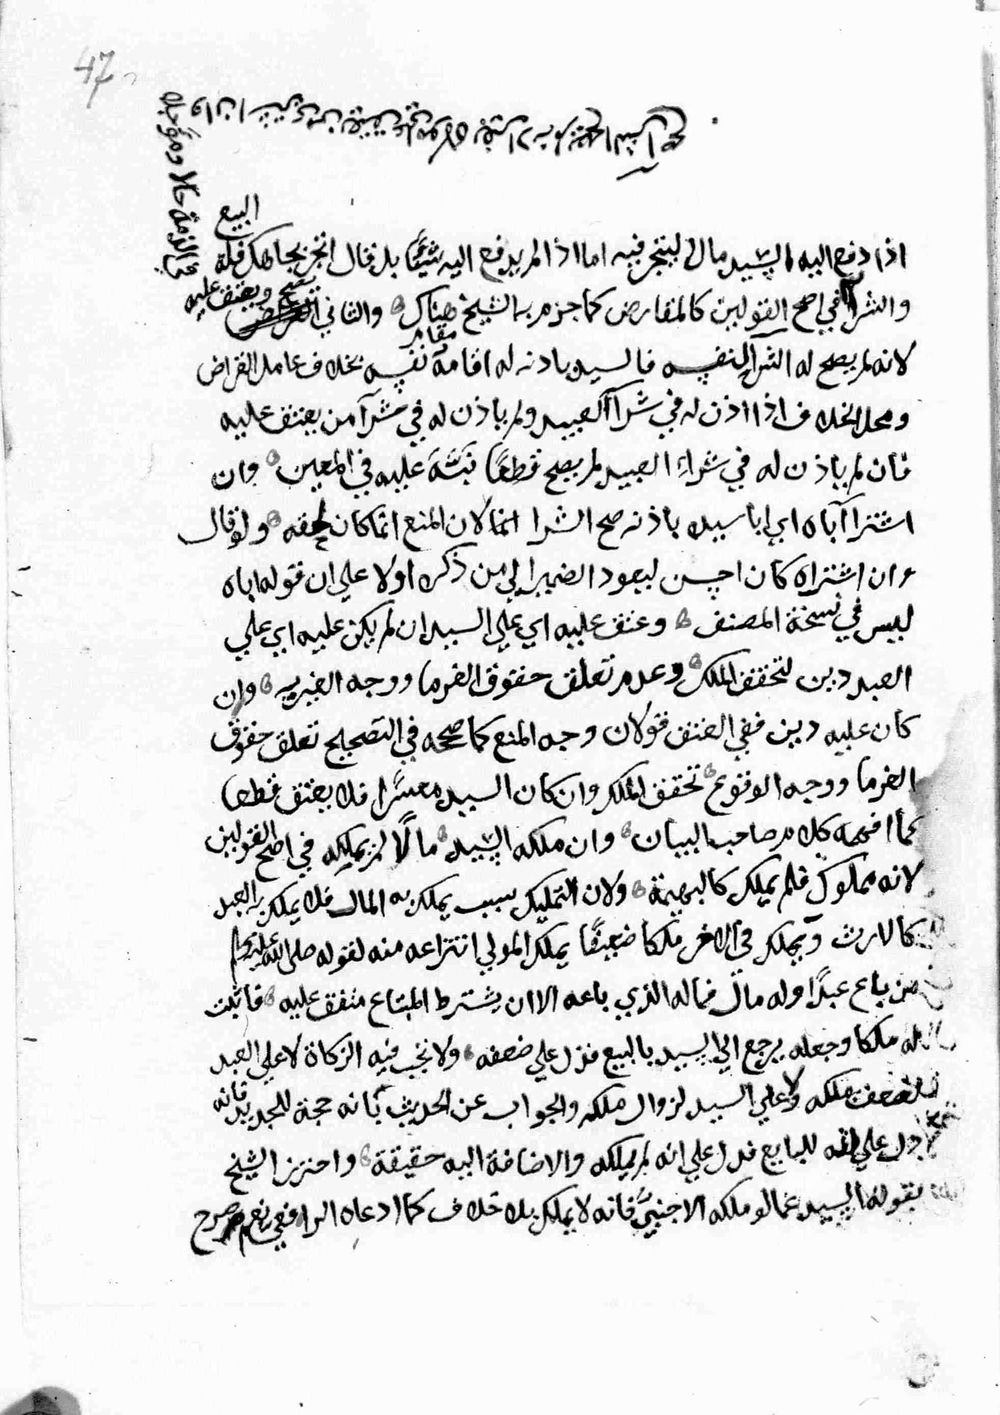 47
في الذمة حالا ومؤجلا
البيع
اذا دفع اليه السيد مالا ليتجر فيه اما اذا لم يدفع اليه شيئا بل قال اتجر بجاهك فله
والشرآ في اصح القولين كالمقارض كما جزم به الشيخ هناك والثاني يصح ويعتق عليه
لانه لم يصح له الشرآ لنفسه فالسيد باذنه له اقامه مقام نفسه بخلاف عامل القراض
ومحل الخلاف اذا اذن له في شرآ العبيد ولم ياذن له في شرآ من يعتق عليه
فان لم ياذن له في شراء العبيد لم يصح قطعا نبه عليه في المعين وان
اشترا آباه اي ابا سيده باذنه صح الشرا انما لان المنع انما كان لحقه ولو قال
وان اشتراه كان احسن ليعود الضمير الي من ذكره اولا علي ان قوله اباه
ليس في نسخة المصنف وعتق عليه اي علي السيد ان لم يكن عليه اي علي
العبد دين لتحقق الملك وعدم تعلق حقوق الغرما ووجه الغير به وان
كان عليه دين ففي العتق قولان وجه المنع كما صححه في التصحيح تعلق حقوق
الغرما ووجه الوقوع تحقق الملك وان كان السيد معسرا فلا يعتق قطعا
كما افهمه كلام صاحب البيان وان ملكه السيد مالا لم يملكه في اصح القولين
لانه مملوك فلم يملك كالبهيمة ولان التمليك سبب يملك به المال فلا يملك به العبد
كالارث ويملك في الاخر ملكا ضعيفا يملك المولي انتزاعه منه لقوله صلى الله عليه وسلم
من باع عبدا وله مال فماله للذي باعه الا ان يشترط المبتاع متفق عليه فاثبت
له ملكا وجعله يرجع الي السيد بالبيع فدل علي ضعفه ولا تجب فيه الزكاة لا علي العبد
لضعف ملكه ولا علي السيد لزوال ملكه والجواب عن الحديث بانه حجة للجديد فانه
دل علي انه للبايع فدل علي انه لم يملكه والاضافة اليه حقيقة واحترز الشيخ
بقوله السيد عما لو ملكه الاجنبي فانه لا يملك بلا خلاف كما ادعاه الرافعي نعم صرح